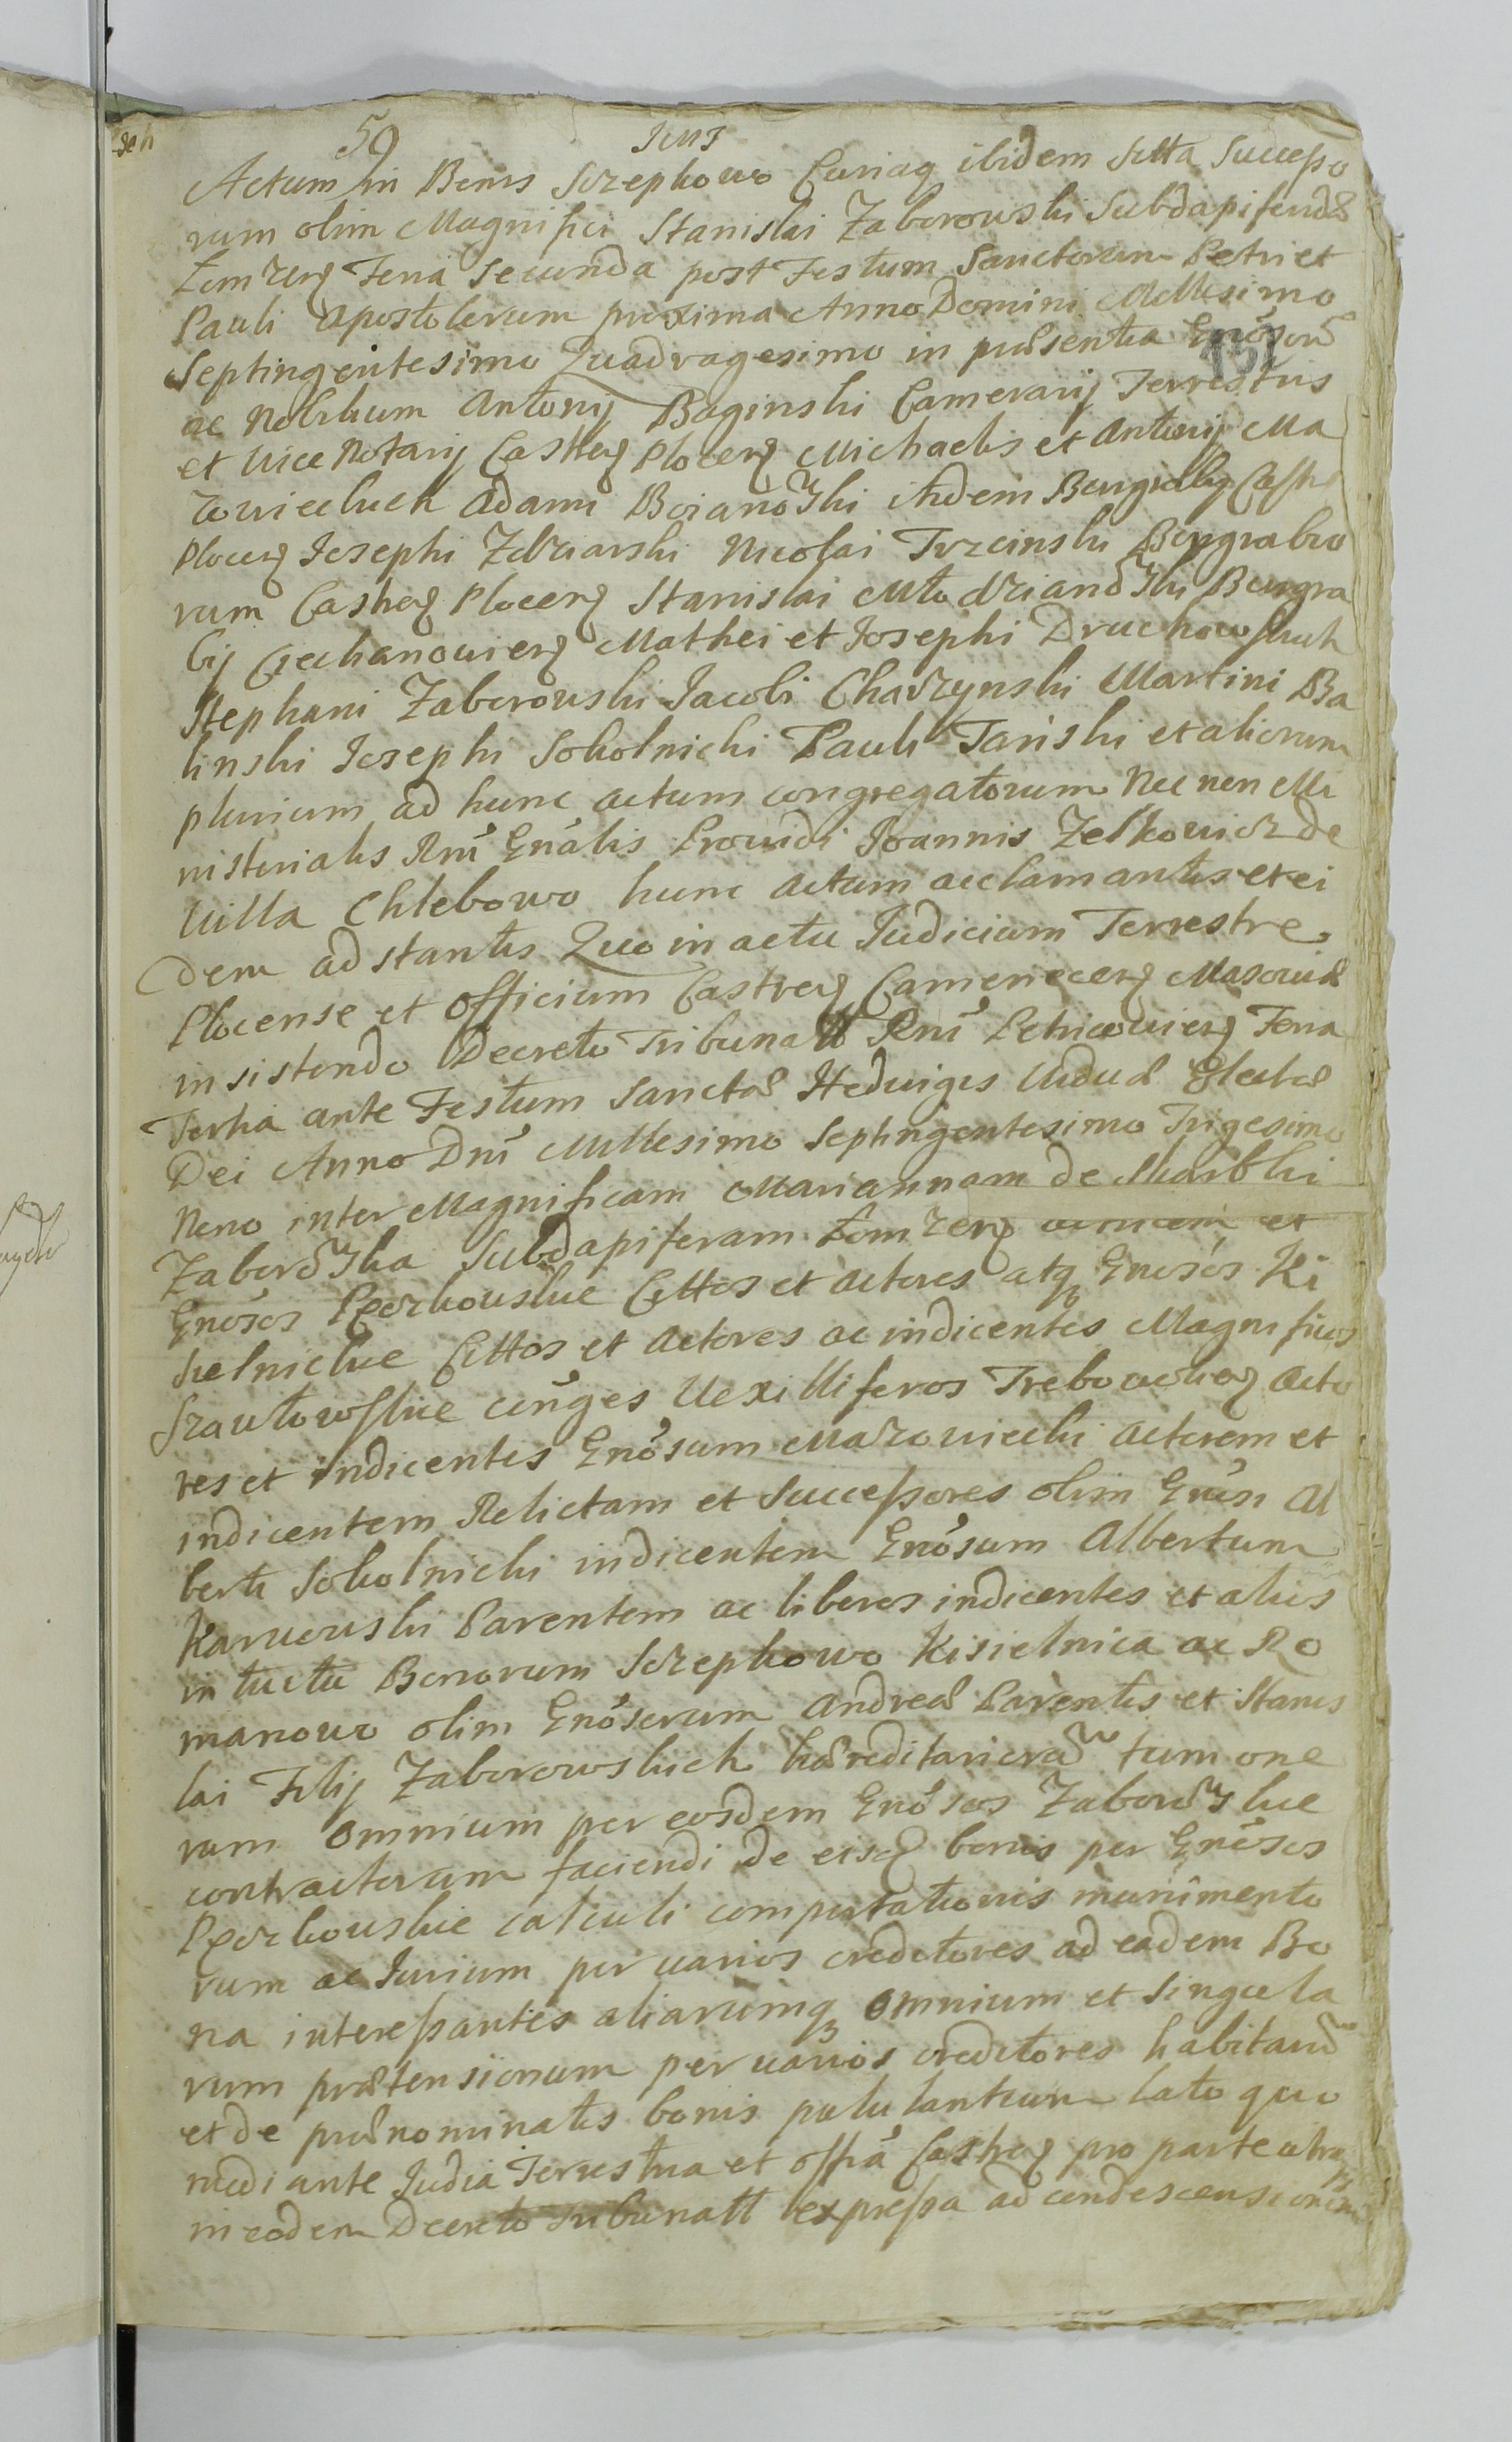 59
Actum in Bonis Szczepkowo Curiaq ibidem Sitta Successo
rum olim Magnifici Stanislai Zaborowski Subdapiferidæ
Łomzeñ Feria Secunda post Festum Sanctorum Petri et
Pauli Apostolorum proxima Anno Domini Millesimo
152
Septingentesimo Quadragesimo in præsentia Gnõsorũ
ac Nobilium Antonij Baginski Camerarij Terrestris
et Vice Notarij Castreñ Ploceñ Michaelis et Antonij Ma
zowieckich Adami Boianowski itidem Burgrabij Castre
Ploceñ Josephi Zdziarski Nicolai Trzcinski Burgrabio
rum Castreñ Ploceñ Stanislai Młodzianowski Burgra
bij Ciechanovieñ Mathei et Josephi Druchowskich
Stephani Zaborowski Jacobi Chadzynski Martini Ba
linski Josephi Sokolnicki Pauli Tariski et aliorum
plurium ad hunc actum congregatorum Nec non Mi
nisterialis Rni Gnãlis Providi Joannis Zelkowicz de
Villa Chlebowo hunc actum acclamantis et ei
dem adstantis Quo in actu Judicium Terrestre
Plocense et Officium Castreñ Cameneceñ Masoviæ
insistendo Decreto Tribunalt Rni Petricovieñ Feria
Tertia ante Festum Sanctæ Hedvigis Viduæ Electæ
Dei Anno Dni Millesimo Septingentesimo Trigesimo
Nono inter Magnificam Mariannam de Skarbki
Zaborowska Subdapiferam Łomzeñ actricem et
Gnõsos Pęczkowskie Cittos et actores atq Gnosos Ki
sielnickie Cittos et Actores ac indicentes Magnificos
Szawłowskie cõnges Vexilliferos Trebowleñ Acto
res et indicentes Gnõsum Mazowiecki actorem et
indicentem Relictam et Successores olim Gnõsi Al
berti Sokolnicki indicentem Gnõsum Albertum
Karwowski Parentem ac liberos indicentes et alios
intuitu Bonorum Szczepkowo Kisielnica ac Ro
manowo olim Gnõsorum Andreæ Parentis et Stanis
lai Filij Zaborowskich hæreditariorũ tum one
rum Omnium per eosdem Gnõsos Zaborowskie
contractorum faciendi de eisd bonis per Gnõsos
Pęczkowskie calculi comportationis munimento
rum ac Jurium per varios creditores ad eadem Bo
na interessantes aliarumq Omnium et Singula
rum prætensionum per varios creditores habitarũ
et de prænominatis bonis pululantium lato quo
mediante Judicia Terrestria et Offia Castreñ pro parte utraq
in eodem Decreto Tribunalt expressa ad condescensionem